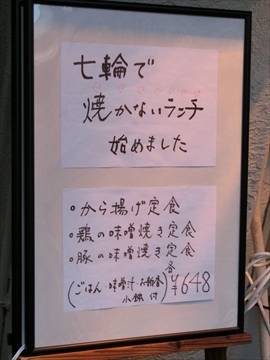 七輪で
焼かないランチ
始めました
。から揚げ定食
。鶏の味噌焼き定食
。豚の味噌焼き定食
各
(ごはん・味噌汁・お新香
小鉢 付)
¥648